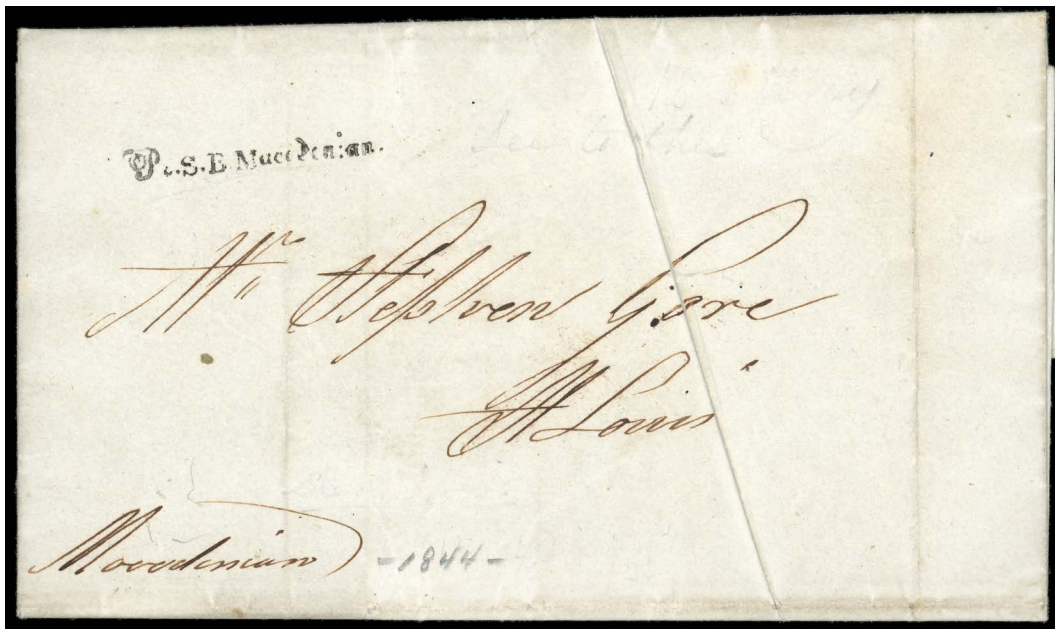 Pr. S. B Macedonian.
Mr Stephen Gore
St Louis
Macedonian
- 1844 -